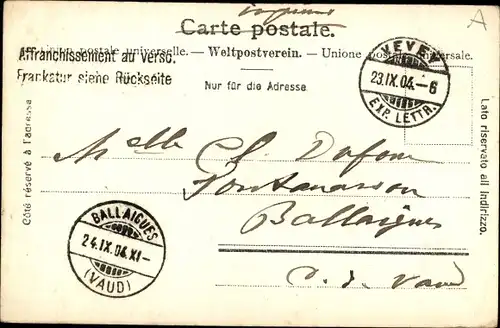 Carte postale.
Union postale universelle. – Weltpostverein. – Unione postale universale.
Affranchissement au verso.
Frankatur siehe Rückseite
Nur für die Adresse
VEVEY
23.IX.04.–6
EXP. LETTR.
Côté réservé à l'adresse
Lato riservato all indirizzo.
Melle Ch. Dufour
Ballaigues
c. de Vaud
BALLAIGUES
24.IX.04.XI–
(VAUD)
A